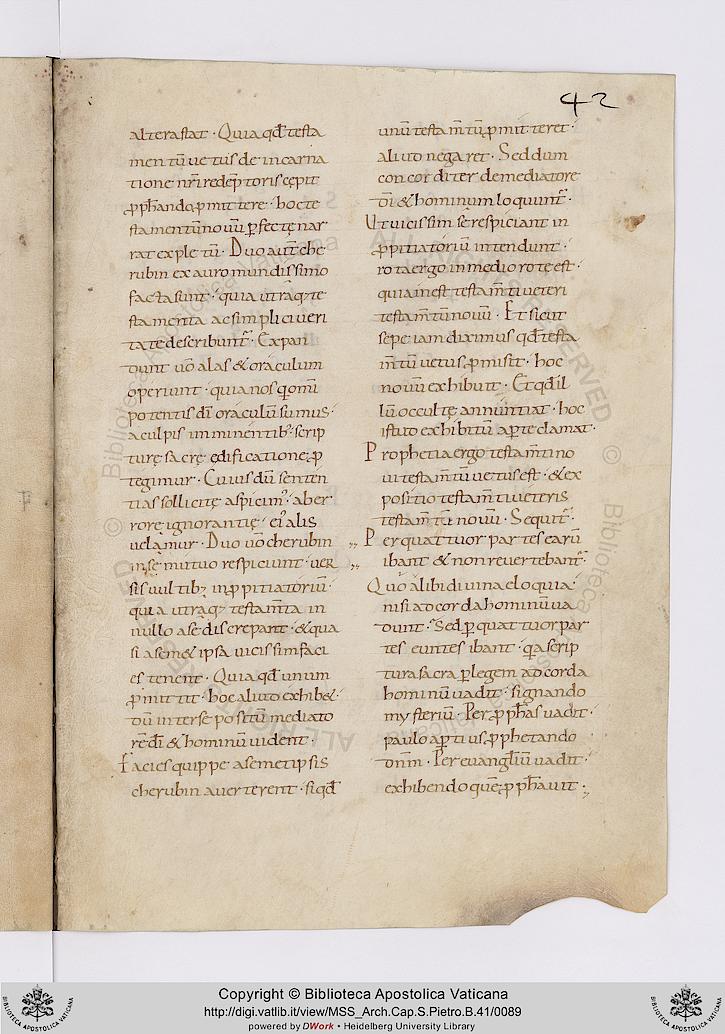 42
alterastat · Quia qđ testa
mentū vetus de incarna
tione nr̄i redēptoris cępit
ꝓphando, ꝓmittere · hoc te
stamentū novū ꝑfectę nar
rat expletū · Duo aut̄ che
rubin ex auro mundissimo
facta sunt · quia utraq; te
stamenta ac simplici veri
tate describunt̄ · Expan
dunt v̄o alas & oraculum
operiunt · quia nos qi om̄i
potentis dī oraculū sumus ·
a culpis imminentib; · scrip
turę sacrę ędificatione, ꝓ
tegimur · Cuius dū senten
tias sollicitę aspicim̄ · ab er
rore ignorantię · ei alis
velamur · Duo v̄o cherubin
in sę mutuo respiciunt · ver
sis vultib; in ꝓpitiatoriū ·
quia utraq; testam̄ta in
nullo a se discrepant · & qua
si a sem& ipsa vicissim faci
es tenent · Quia qđ unum
ꝓmittit · hoc aliud exhib& ·
dū inter se positū mediato
rē dī & hominū vident ·
Facies quippe a semetipsis
cherubin averterent · si qđ
unū testam̄tū ꝓmitteret ·
aliud negaret · Sed dum
concorditer de mediatore
dī & hominum loquunt̄ ·
Ut vicissim sę respiciant in
ꝓpitiatoriū intendunt ·
rota ergo in medio rotę est ·
quia inest testam̄ti veteri
testam̄tū novū · Et sicut
sepe iam diximus qđ testa
m̄tū vetus ꝓmisit · hoc
novum exhibuit · Et qđ il
lud occultę annuntiat · hoc
istud exhibitū aꝑte clamat ·
Prophetia ergo testam̄ti no
vi testam̄tū vetus est · & ex
positio testam̄ti veteris
testam̄tū novū · Sequit̄ ·
Per quattuor partes earū
ibant & non revertebant̄ ·
Quō alibi divina eloquia ·
nisi ad corda hominū va
dunt · Sed ꝑ quattuor par
tes euntes ibant · qa scrip
tura sacra ꝑ legem ad corda
hominū vadit · signando
mysteriū · Per ꝓphas vadit ·
paulo aꝑtius ꝓphetando
dnm · Per evangliū vadit ·
exhibendo quē ꝓphavit ·
Copyright © Biblioteca Apostolica Vaticana
http://digi.vatlib.it/view/MSS_Arch.Cap.S.Pietro.B.41/0089
powered by DWork • Heidelberg University Library